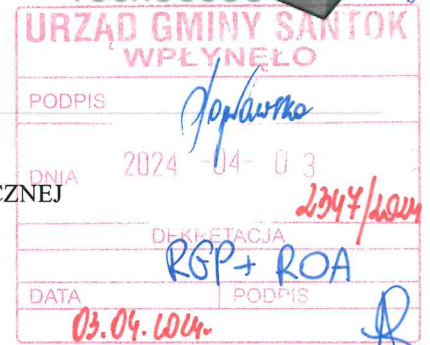 URZĄD GMINY SANTOK
WPŁYNĘŁO
PODPIS
DNIA 2024 -04- 03
CZNEJ
2347/2024
DEKRETACJA
RGP + ROA
DATA PODPIS
03.04.2024